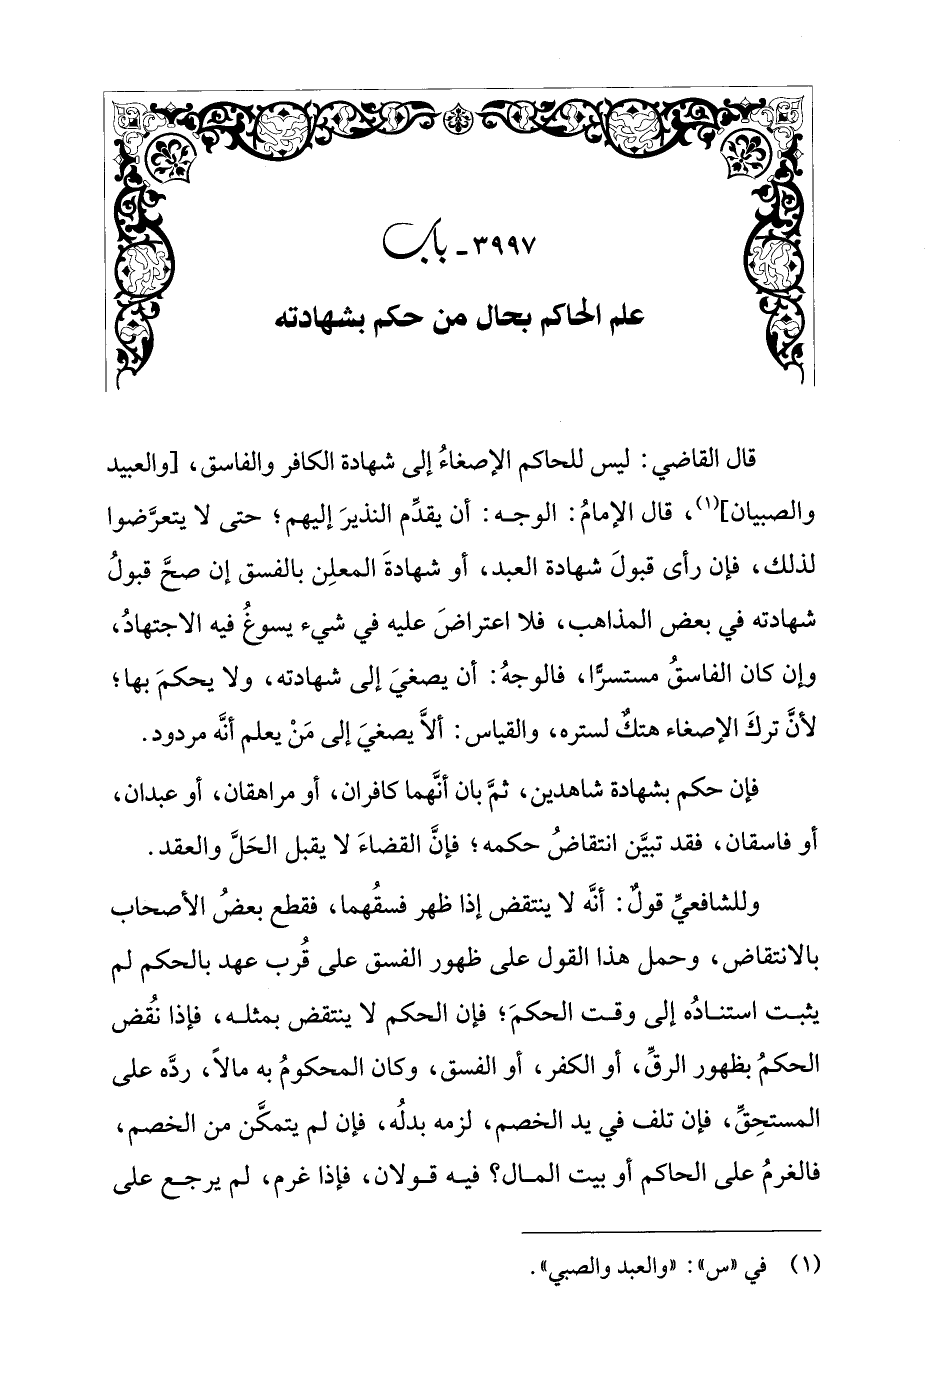 ٣٩٩٧ - باب
علم الحاكم بحال من حكم بشهادته
قال القاضي: ليس للحاكم الإصغاءُ إلى شهادة الكافر والفاسق، [والعبيد
والصبيان](١)، قال الإمامُ: الوجه: أن يقدِّم النذيرَ إليهم؛ حتى لا يتعرَّضوا
لذلك، فإن رأى قبولَ شهادة العبد، أو شهادةَ المعلِن بالفسق إن صحَّ قبولُ
شهادته في بعض المذاهب، فلا اعتراضَ عليه في شيء يسوغُ فيه الاجتهادُ،
وإن كان الفاسقُ مستسرًّا، فالوجهُ: أن يصغيَ إلى شهادته، ولا يحكمَ بها؛
لأنَّ تركَ الإصغاء هتكٌ لستره، والقياس: ألاَّ يصغيَ إلى مَنْ يعلم أنَّه مردود.
فإن حكم بشهادة شاهدين، ثمَّ بان أنَّهما كافران، أو مراهقان، أو عبدان،
أو فاسقان، فقد تبيَّن انتقاضُ حكمه؛ فإنَّ القضاءَ لا يقبل الحَلَّ والعقد.
وللشافعيِّ قولٌ: أنَّه لا ينتقض إذا ظهر فسقُهما، فقطع بعضُ الأصحاب
بالانتقاض، وحمل هذا القول على ظهور الفسق على قُرب عهد بالحكم لم
يثبت استنادُه إلى وقت الحكمَ؛ فإن الحكم لا ينتقض بمثله، فإذا نُقض
الحكمُ بظهور الرقِّ، أو الكفر، أو الفسق، وكان المحكومُ به مالاً، ردَّه على
المستحِقِّ، فإن تلف في يد الخصم، لزمه بدلُه، فإن لم يتمكَّن من الخصم،
فالغرمُ على الحاكم أو بيت المال؟ فيه قولان، فإذا غرم، لم يرجع على
(١) في «س»: «والعبد والصبي».